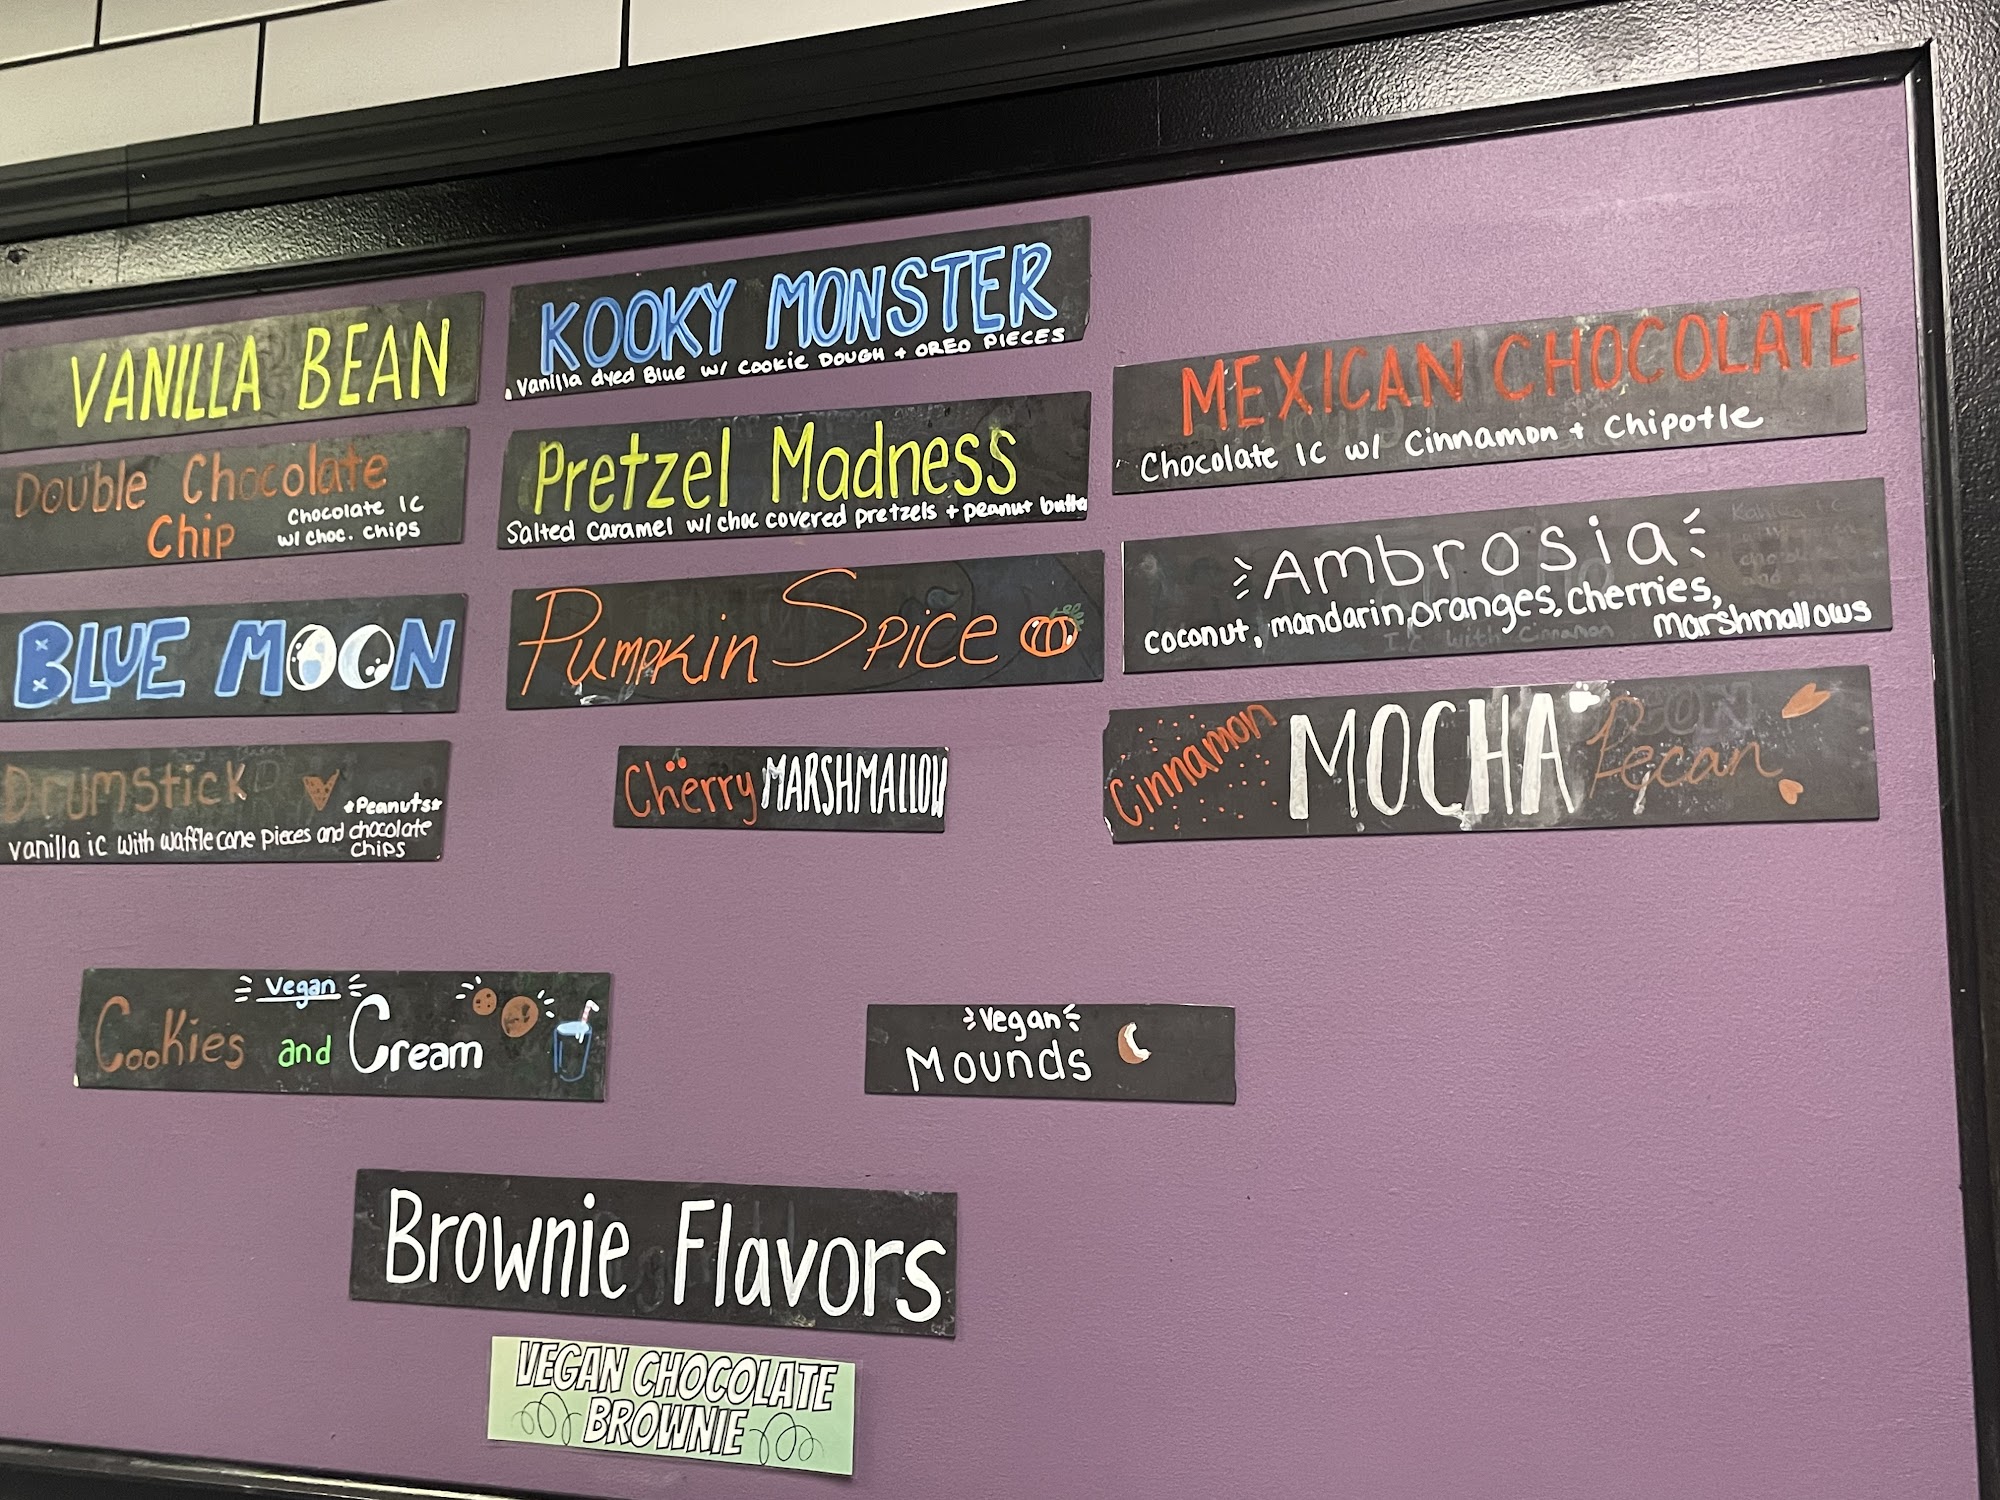 VANILLA BEAN
Double Chocolate
Chip
Chocolate IC
w/ choc. chips
BLUE MOON
Drumstick
*Peanuts*
vanilla ic with waffle cone pieces and chocolate
chips
KOOKY MONSTER
Vanilla dyed Blue w/ Cookie DOUGH + OREO PIECES
Pretzel Madness
Salted Caramel w/ choc covered pretzels + peanut butter
Pumpkin Spice
Cherry MARSHMALLOW
MEXICAN CHOCOLATE
Chocolate IC w/ Cinnamon + Chipotle
Ambrosia
coconut, mandarin, oranges, cherries,
marshmallows
Cinnamon MOCHA Pecan
Vegan
Cookies and Cream
Vegan
Mounds
Brownie Flavors
VEGAN CHOCOLATE
BROWNIE